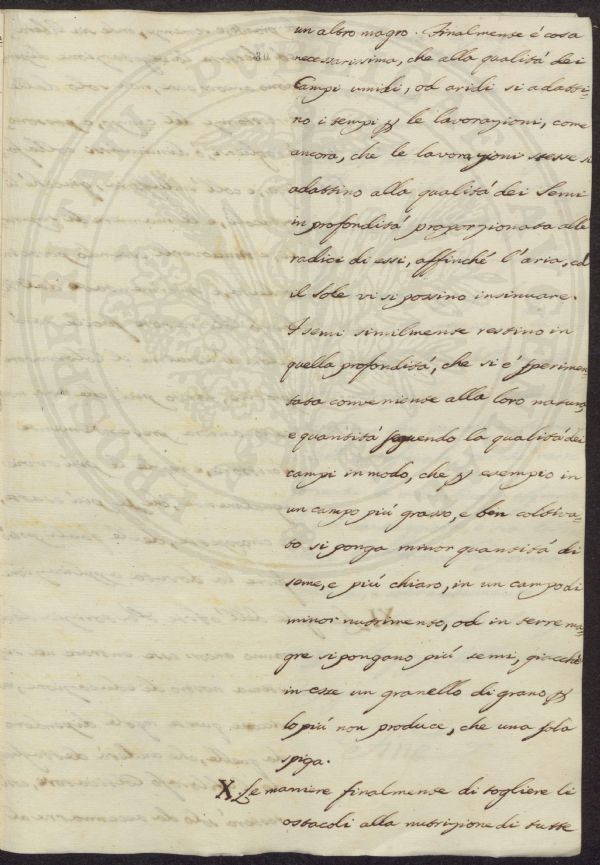 un altro magro. Finalmente é cosa
necessarissima, che alla qualitá dei
Campi umidi, od aridi si adatti-
no i tempi p le lavorazioni, come
ancora, che le lavorazioni stesse si
adattino alla qualitá dei Semi
in profonditá proporzionata alle
radici di essi, affinché l'aria, ed
il Sole vi si possino insinuare.
I semi similmente restino in
quella profonditá, che si é sperimen-
tata conveniente alla loro natura,
e quantitá seguendo la qualitá dei
campi in modo, che p esempio in
un campo piú grasso, e ben coltiva-
to si ponga minor quantitá di
seme, e piú chiaro, in un campo di
minor nutrimento, od in terre ma-
gre si pongano piú semi, giacché
in esse un granello di grano p
lo piú non produce, che una sola
spiga.
X. Le maniere finalmente di togliere li
ostacoli alla nutrizione di tutte